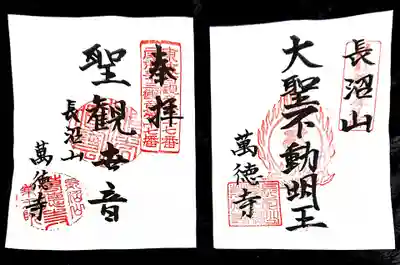 奉拝
聖觀世音
長沼山
萬德寺
長沼山
大聖不動明王
萬德寺